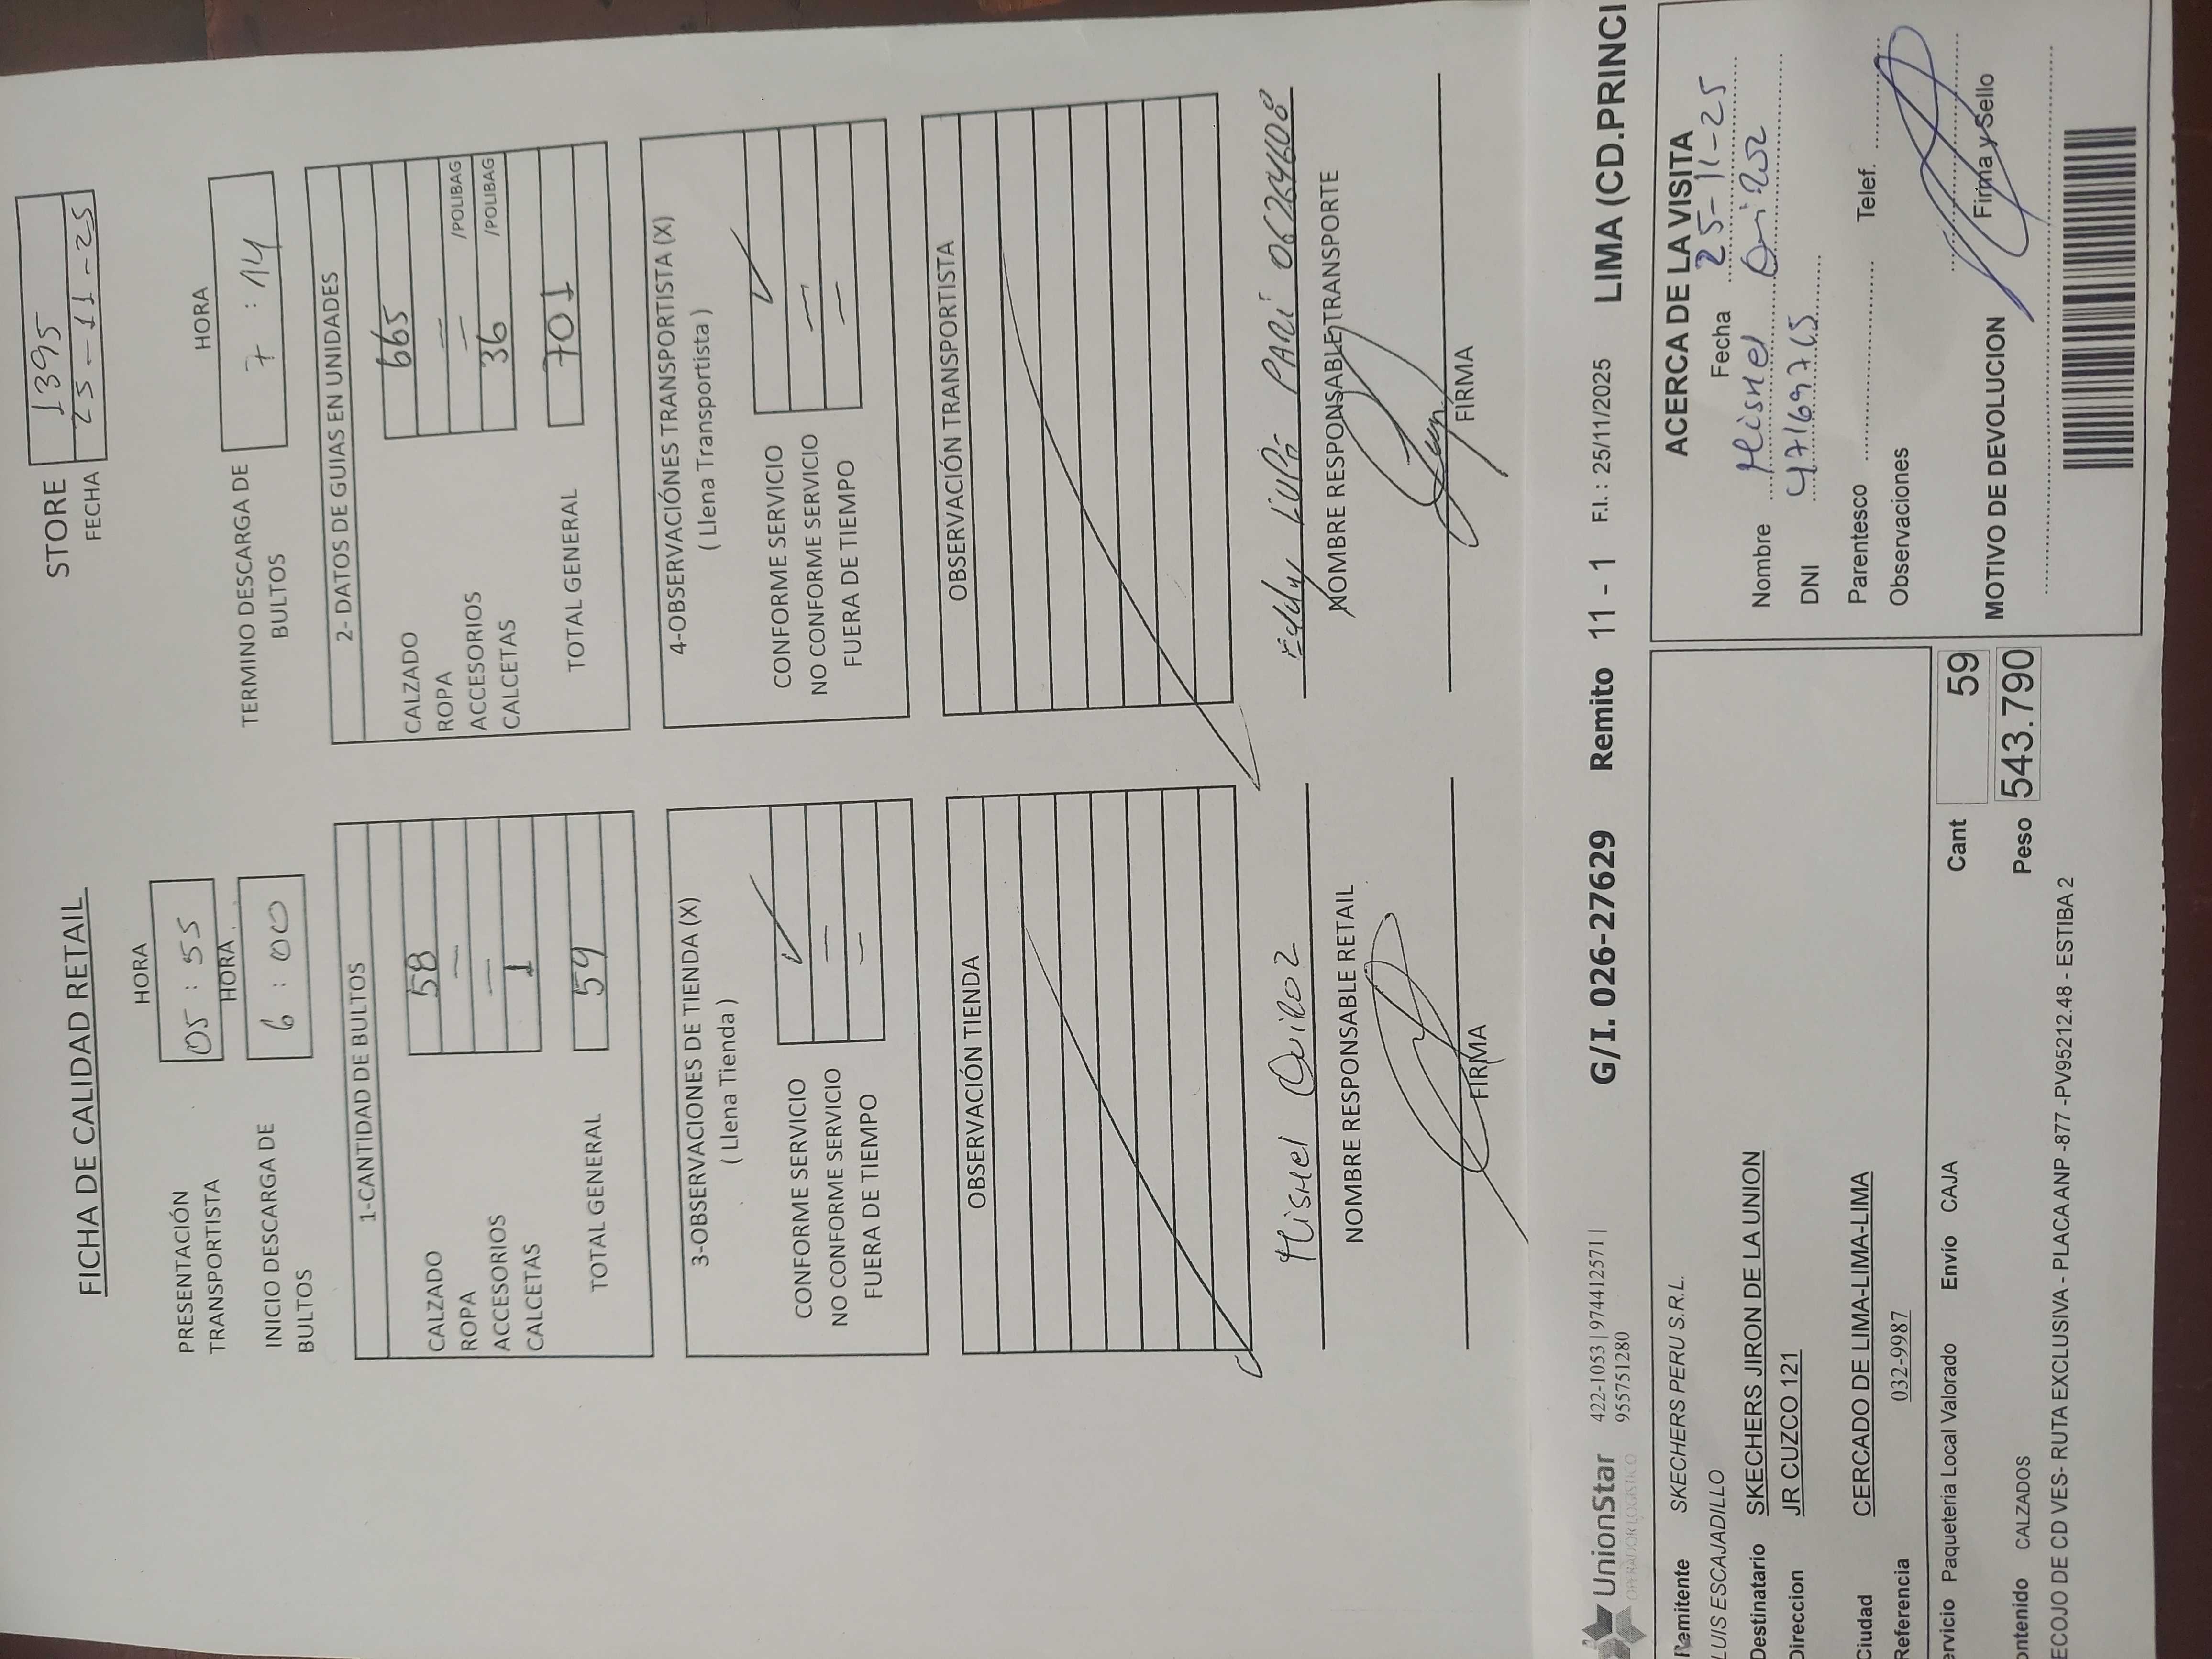 FICHA DE CALIDAD RETAIL
STORE 1395
FECHA 25-11-25
PRESENTACIÓN TRANSPORTISTA
HORA
05 : 55
INICIO DESCARGA DE BULTOS
HORA
6 : 00
TERMINO DESCARGA DE BULTOS
HORA
7 : 14
1-CANTIDAD DE BULTOS
CALZADO 58
ROPA —
ACCESORIOS —
CALCETAS 1
TOTAL GENERAL 59
2- DATOS DE GUIAS EN UNIDADES
CALZADO 665
ROPA — /POLIBAG
ACCESORIOS — /POLIBAG
CALCETAS 36
TOTAL GENERAL 701
3-OBSERVACIONES DE TIENDA (X)
( Llena Tienda )
CONFORME SERVICIO ✓
NO CONFORME SERVICIO —
FUERA DE TIEMPO —
4-OBSERVACIÓNES TRANSPORTISTA (X)
( Llena Transportista )
CONFORME SERVICIO ✓
NO CONFORME SERVICIO —
FUERA DE TIEMPO —
OBSERVACIÓN TIENDA
OBSERVACIÓN TRANSPORTISTA
Mishel Quiroz
NOMBRE RESPONSABLE RETAIL
FIRMA
Eddy PARI
NOMBRE RESPONSABLE TRANSPORTE
FIRMA
UnionStar
OPERADOR LOGISTICO
422-1053 | 974412571 |
955751280
G/I. 026-27629 Remito 11 - 1 F.I. : 25/11/2025 LIMA (CD.PRINCI
Remitente SKECHERS PERU S.R.L.
LUIS ESCAJADILLO
Destinatario SKECHERS JIRON DE LA UNION
Direccion JR CUZCO 121
Ciudad CERCADO DE LIMA-LIMA-LIMA
Referencia 032-9987
ervicio Paqueteria Local Valorado Envío CAJA Cant 59
ontenido CALZADOS Peso 543.790
ECOJO DE CD VES- RUTA EXCLUSIVA - PLACA ANP -877 -PV95212.48 - ESTIBA 2
ACERCA DE LA VISITA
Fecha 25-11-25
Nombre Mishel Quiroz
DNI
Parentesco Telef.
Observaciones
Firma y Sello
MOTIVO DE DEVOLUCION